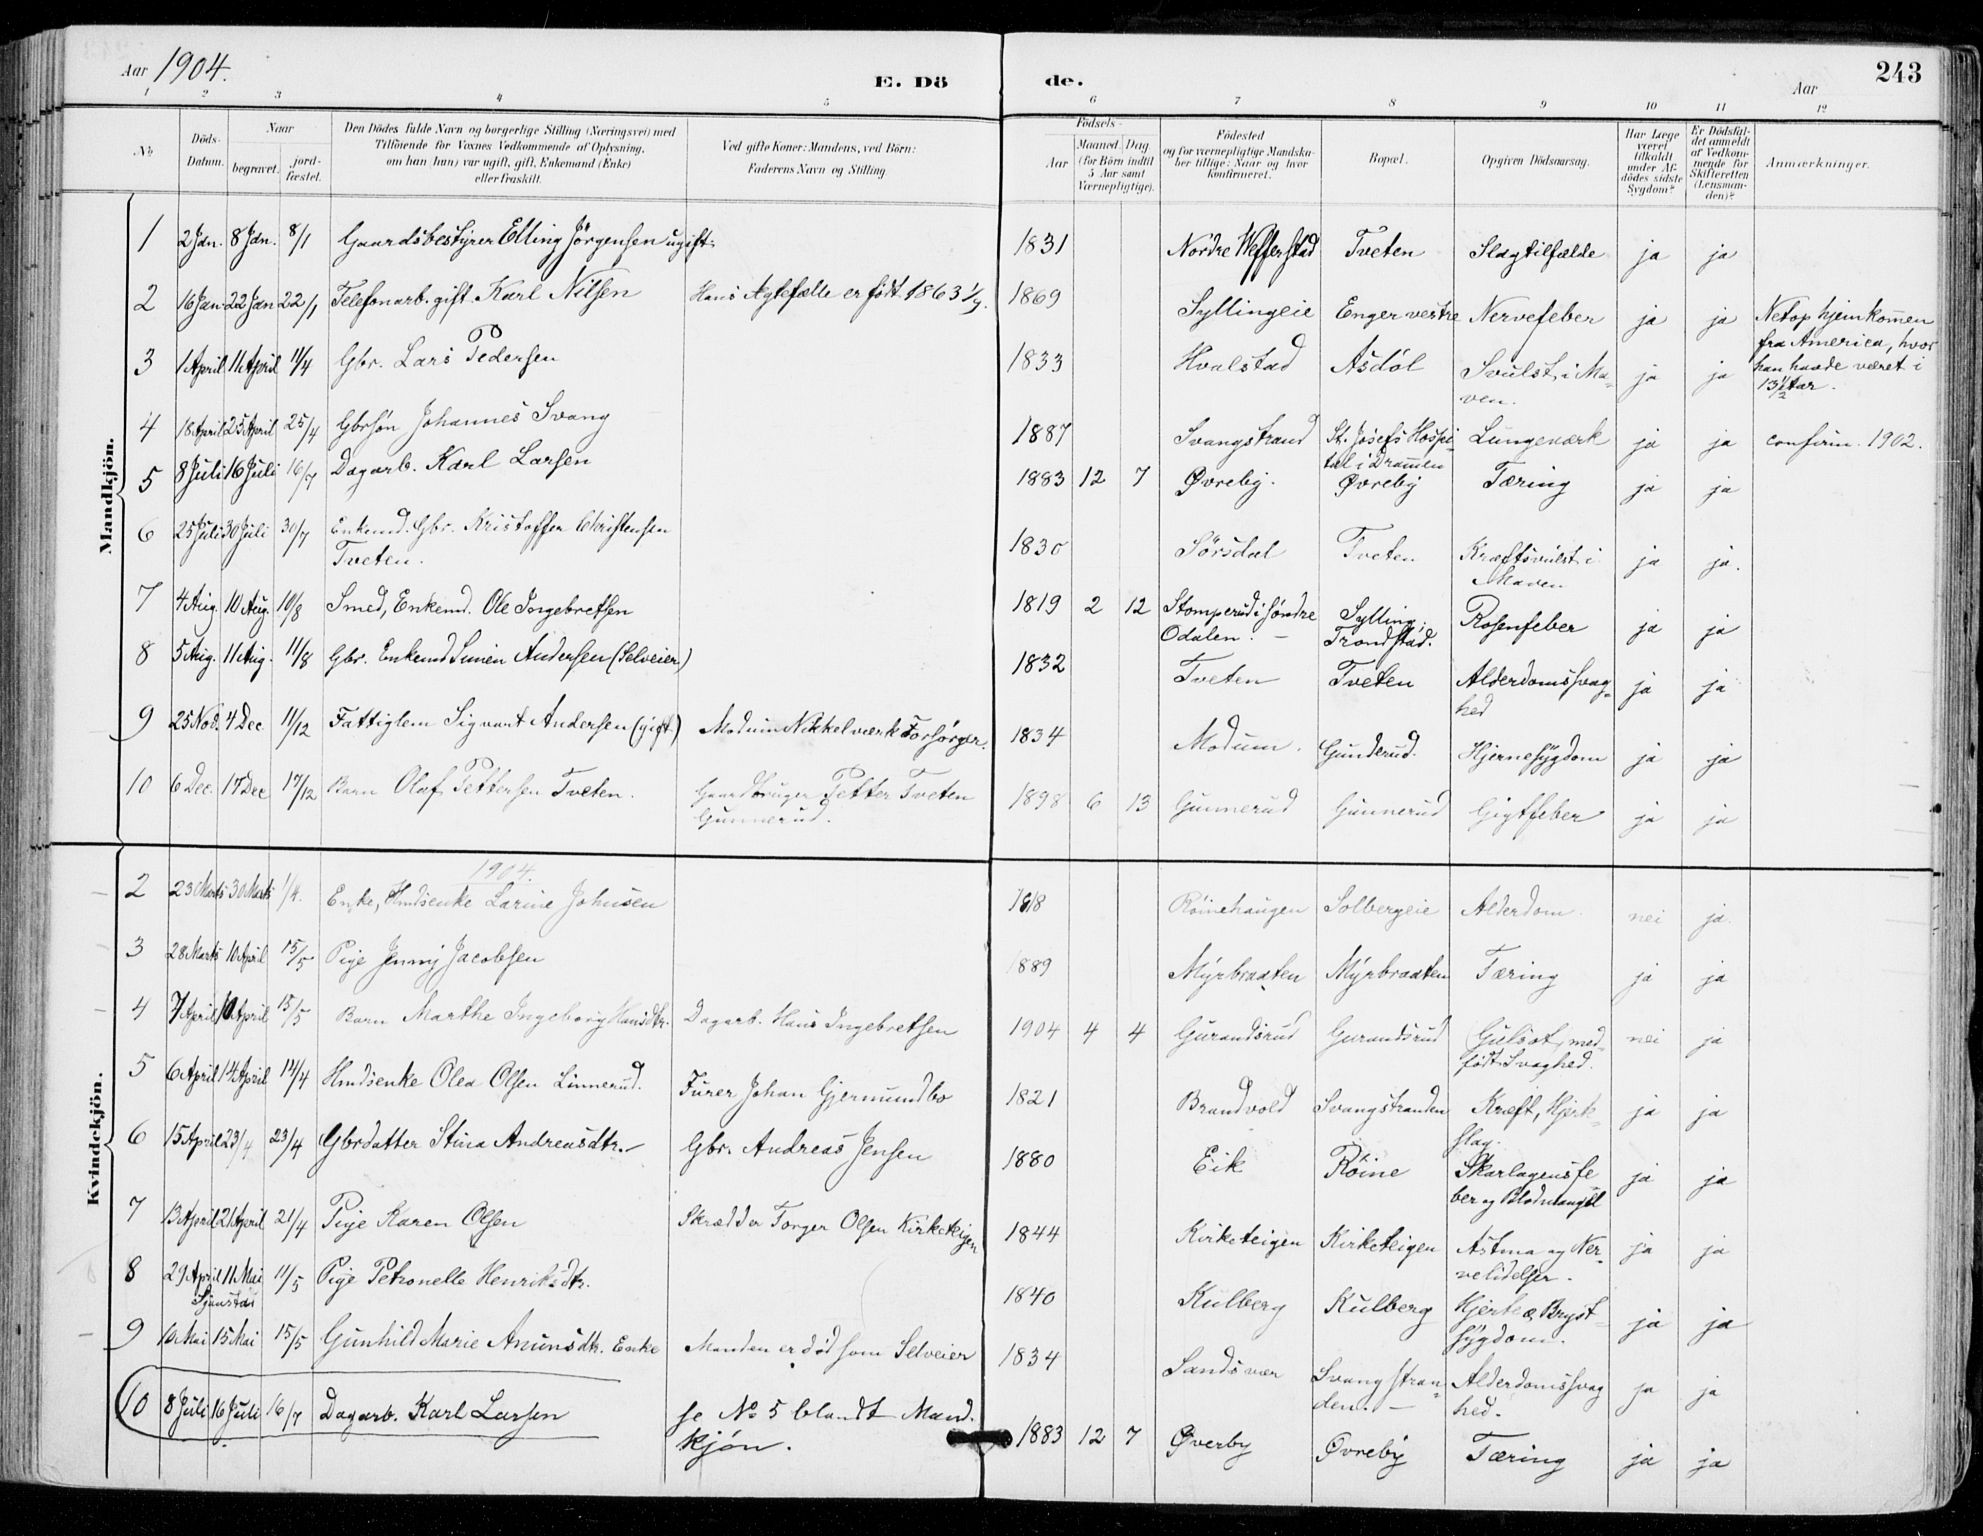 Aar 1904.
E. Dö
de.
Aar
243
1 2 3 4 5 6 7 8 9 10 11 12
No
Döds-
Datum.
Naar
begravet.
jord-
fæstet.
Den Dödes fulde Navn og borgerlige Stilling (Næringsvei) med
Tilföiende for Voxnes Vedkommende af Oplysning,
om han (hun) var ugift, gift, Enkemand (Enke)
eller fraskilt.
Ved gifte Koner: Mandens, ved Börn:
Faderens Navn og Stilling
Födsels-
Aar
Maaned. Dag
(for Börn indtil
5 Aar samt
Værnepligtige).
Födested
og for værnepligtige Mandska-
ber tillige: Naar og hvor
konfirmeret.
Bopæl.
Opgiven Dödsaarsag.
Har Læge
været
tilkaldt
under Af-
dödes sidste
Sygdom?
Er Dödsfal-
det anmeldt
af Vedkom-
mende for
Skifteretten
(Lensman-
den)?
Anmærkninger.
Mandkjön.
1 2 Jan. 8 Jan. 8/1 Gaardsbestyrer Elling Jörgensen ugift. 1831 Nordre Tveten Slagtilfælde ja ja
2 16 Jan 22 Jan 22/1 Telefonarb. gift Karl Nilsen Hans Ægtefælle er født 1863 1/9. 1869 Syllingeie Enger vestre Nervefeber ja ja Netop hjemkommen
fra America, hvor
han havde været i
13½ Aar.
3 1 April 11 April 11/4 Gbr. Lars Pedersen 1833 Hvalstad Asdøl Svulst i Ma-
ven. ja ja
4 18 April 25 April 25/4 Gbrsøn Johannes Svang 1887 Svangstrand St. Josefs Hospi-
tal i Drammen Lungeværk ja ja confirm. 1902.
5 8 Juli 16 Juli 16/7 Dagarb. Karl Larsen 1883 12 7 Øvreby. Øvreby Tæring ja ja
6 25 Juli 30 Juli 30/7 Enkemd. Gbr. Kristoffer Christensen
Tveten. 1830 Sørsdal Tveten Kræftsvulst i
Maven ja ja.
7 4 Aug. 10 Aug. 10/8 Smed, Enkemd. Ole Ingebretsen 1819 2 12 Stomperud i Søndre
Odalen. Sylling,
Trondstad. Rosenfeber ja ja
8 5 Aug. 11 Aug. 11/8 Gbr. Enkemd Simen Andersen (Selveier) 1832 Tveten Tveten Alderdomssvag-
hed ja ja
9 25 Nov. 4 Dec. 11/12 Fattiglem Sigvart Andersen (gift) Modum Nikkelværk Forsørger. 1834 Modum. Gunderud. Hjernesygdom ja ja
10 6 Dec. 17 Dec 17/12 Barn Olaf Pettersen Tveten. Gaardbruger Petter Tveten
Gunnerud. 1898 6 13 Gunnerud Gunnerud Gigtfeber ja ja
Kvindekjön.
1904.
2 23 Marts 30 Marts 1/4. Enke, Hmdsenke Larine Johnsen 1818 Röinehaugen Solbergeie Alderdom. nei ja.
3 28 Marts 10 April 15/5 Pige Jenny Jacobsen 1889 Myrbraaten Myrbraaten Tæring ja ja
4 7 April 10 April 15/5 Barn Marthe Ingeborg Hansdtr. Dagarb. Hans Ingebretsen 1904 4 4 Gurandsrud Gurandsrud Gulsot, med-
født Svaghed. nei ja
5 6 April 14 April 14/4 Hmdsenke Olea Olsen Linnerud. Furer Johan Gjermundbo 1821 Brandvold Svangstranden Kræft, Hjerte-
slag. ja ja
6 15 April 23/4 23/4 Gbrdatter Stina Andreasdtr. Gbr. Andreas Jensen 1880 Eik Röine Skarlagensfe
ber og Blodmangel ja ja
7 13 April 21 April 21/4 Pige Karen Olsen Skrædder Torger Olsen Kirketeigen 1844 Kirketeigen Kirketeigen Astma og Ner-
velidelser. ja ja
8 29 April 11 Mai 11/5 Pige Petronelle Henriksdtr. 1840 Kulberg Kulberg Hjerte & Bryst-
sygdom. ja ja
9 10 Mai 15 Mai 15/5 Gunhild Marie Amunsdtr. Enke Manden er død som Selveier 1834 Sandsvær Svangstran-
den. Alderdomssvag
hed. ja ja
10 8 Juli 16 Juli 16/7 Dagarb. Karl Larsen se No 5 blandt Mand.
kjøn. 1883 12 7 Øverby Øvreby Tæring ja ja